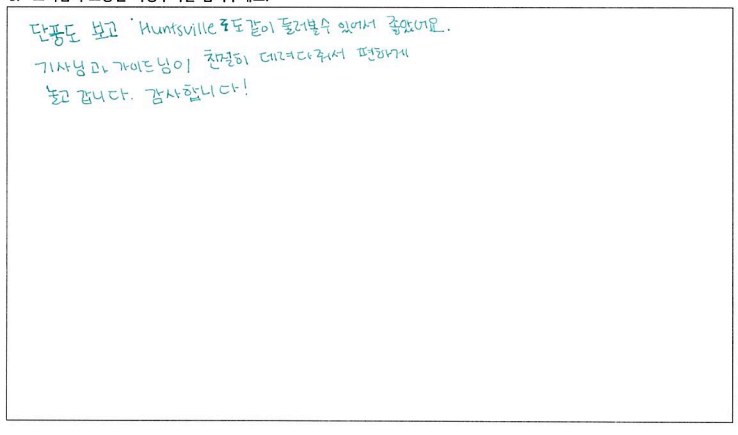 단풍도 보고 Huntsville도 같이 둘러볼수 있어서 좋았어요.
기사님과 가이드님이 친절히 데려다줘서 편하게
놀고 갑니다. 감사합니다!